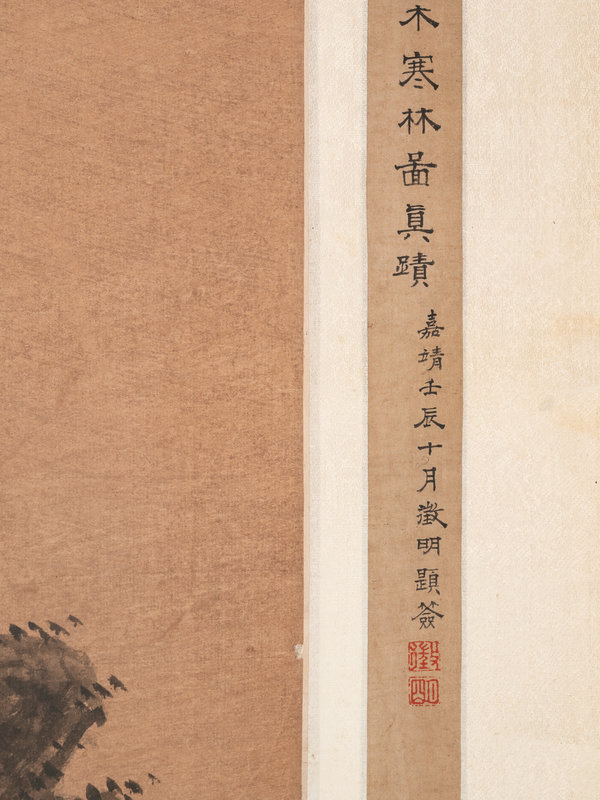 木寒林啚真蹟
嘉靖壬辰十月徵明題簽
徵明